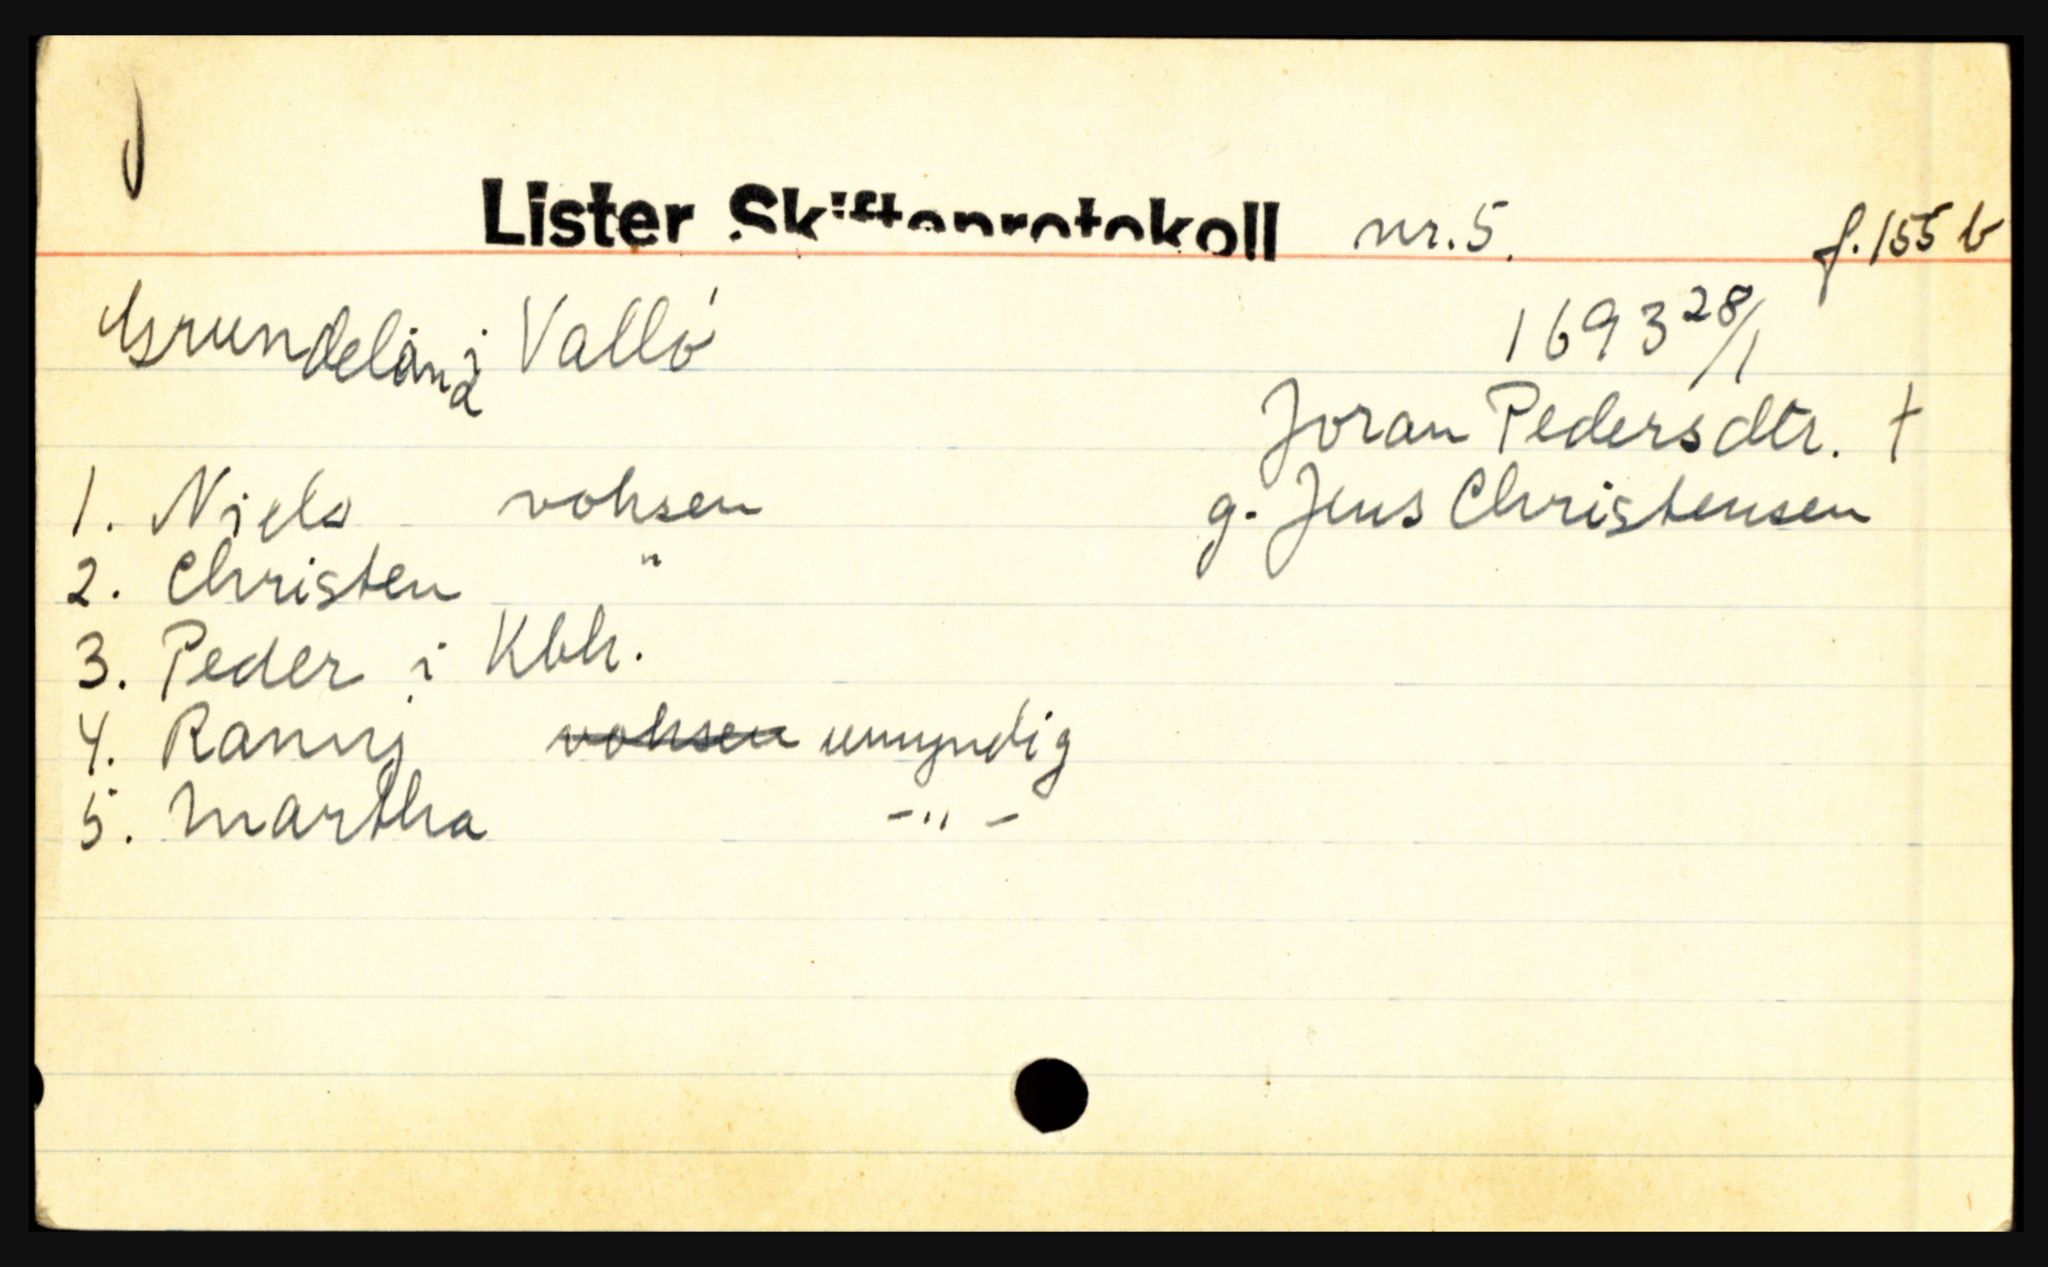 Lister Skifteprotokoll nr. 5. f. 155 b
Grundeland i Vallø 1693 28/1
Joran Pedersdtr. †
1. Niels vohsen g. Jens Christensen
2. Christen "
3. Peder i Kbh.
4. Rannj vohsen umyndig
5. Martha -"-